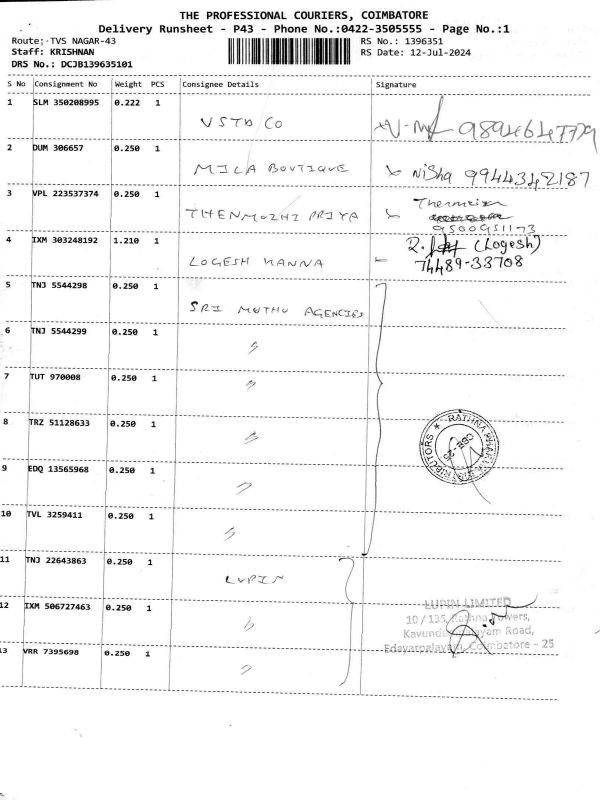 THE PROFESSIONAL COURIERS, COIMBATORE
Delivery Runsheet - P43 - Phone No.:0422-3505555 - Page No.:1
Route: TVS NAGAR-43 RS No.: 1396351
Staff: KRISHNAN RS Date: 12-Jul-2024
DRS No.: DCJB139635101
S No Consignment No Weight PCS Consignee Details Signature
1 SLM 350208995 0.222 1
VSTD CO 9894647779
2 DUM 306657 0.250 1
MILA BOUTIQUE Nisha 9944342187
3 VPL 223537374 0.250 1
THENMOZHI PRIYA
9500951173
4 IXM 303248192 1.210 1 (Logesh)
LOGESH KANNA 74489-33708
5 TNJ 5544298 0.250 1
SRI MUTHU AGENCIES
6 TNJ 5544299 0.250 1
"
7 TUT 970008 0.250 1
"
8 TRZ 51128633 0.250 1
"
RATHNA
CBE
9 EDQ 13565968 0.250 1
"
10 TVL 3259411 0.250 1
"
11 TNJ 22643863 0.250 1
LUPIN
12 IXM 506727463 0.250 1
"
LUPIN LIMITED
10 / 135, Rathna Towers,
Road,
Coimbatore - 25
13 VRR 7395698 0.250 1
"